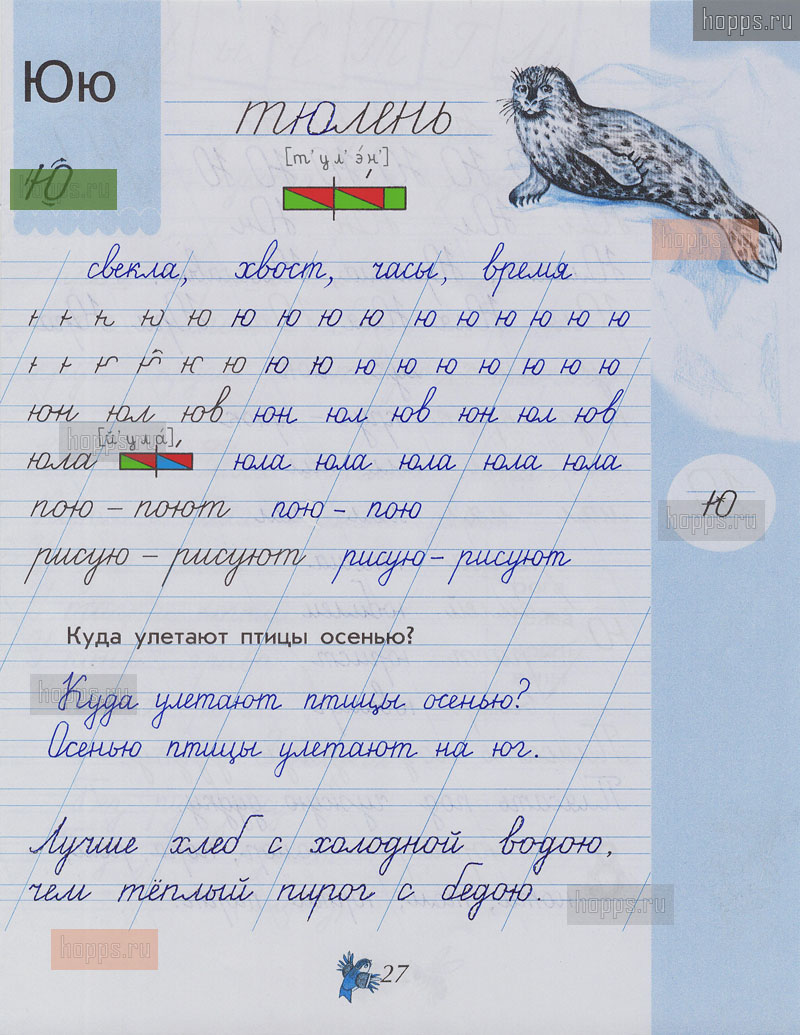 hopps.ru
Юю
тюлень
[т'ул'э́н']
Ю
hopps.ru
hopps.ru
свекла, хвост, часы, время
ю ю ю ю ю ю ю ю ю ю ю ю
ю ю ю ю ю ю ю ю ю ю ю
юн юл юв юн юл юв юн юл юв
hopps.ru
[й'ула́]
юла юла юла юла юла юла
ю
hopps.ru
пою – поют пою – пою
рисую – рисуют рисую – рисуют
Куда улетают птицы осенью?
hopps.ru
Куда улетают птицы осенью?
Осенью птицы улетают на юг.
Лучше хлеб с холодной водою,
чем тёплый пирог с бедою.
hopps.ru
hopps.ru
27